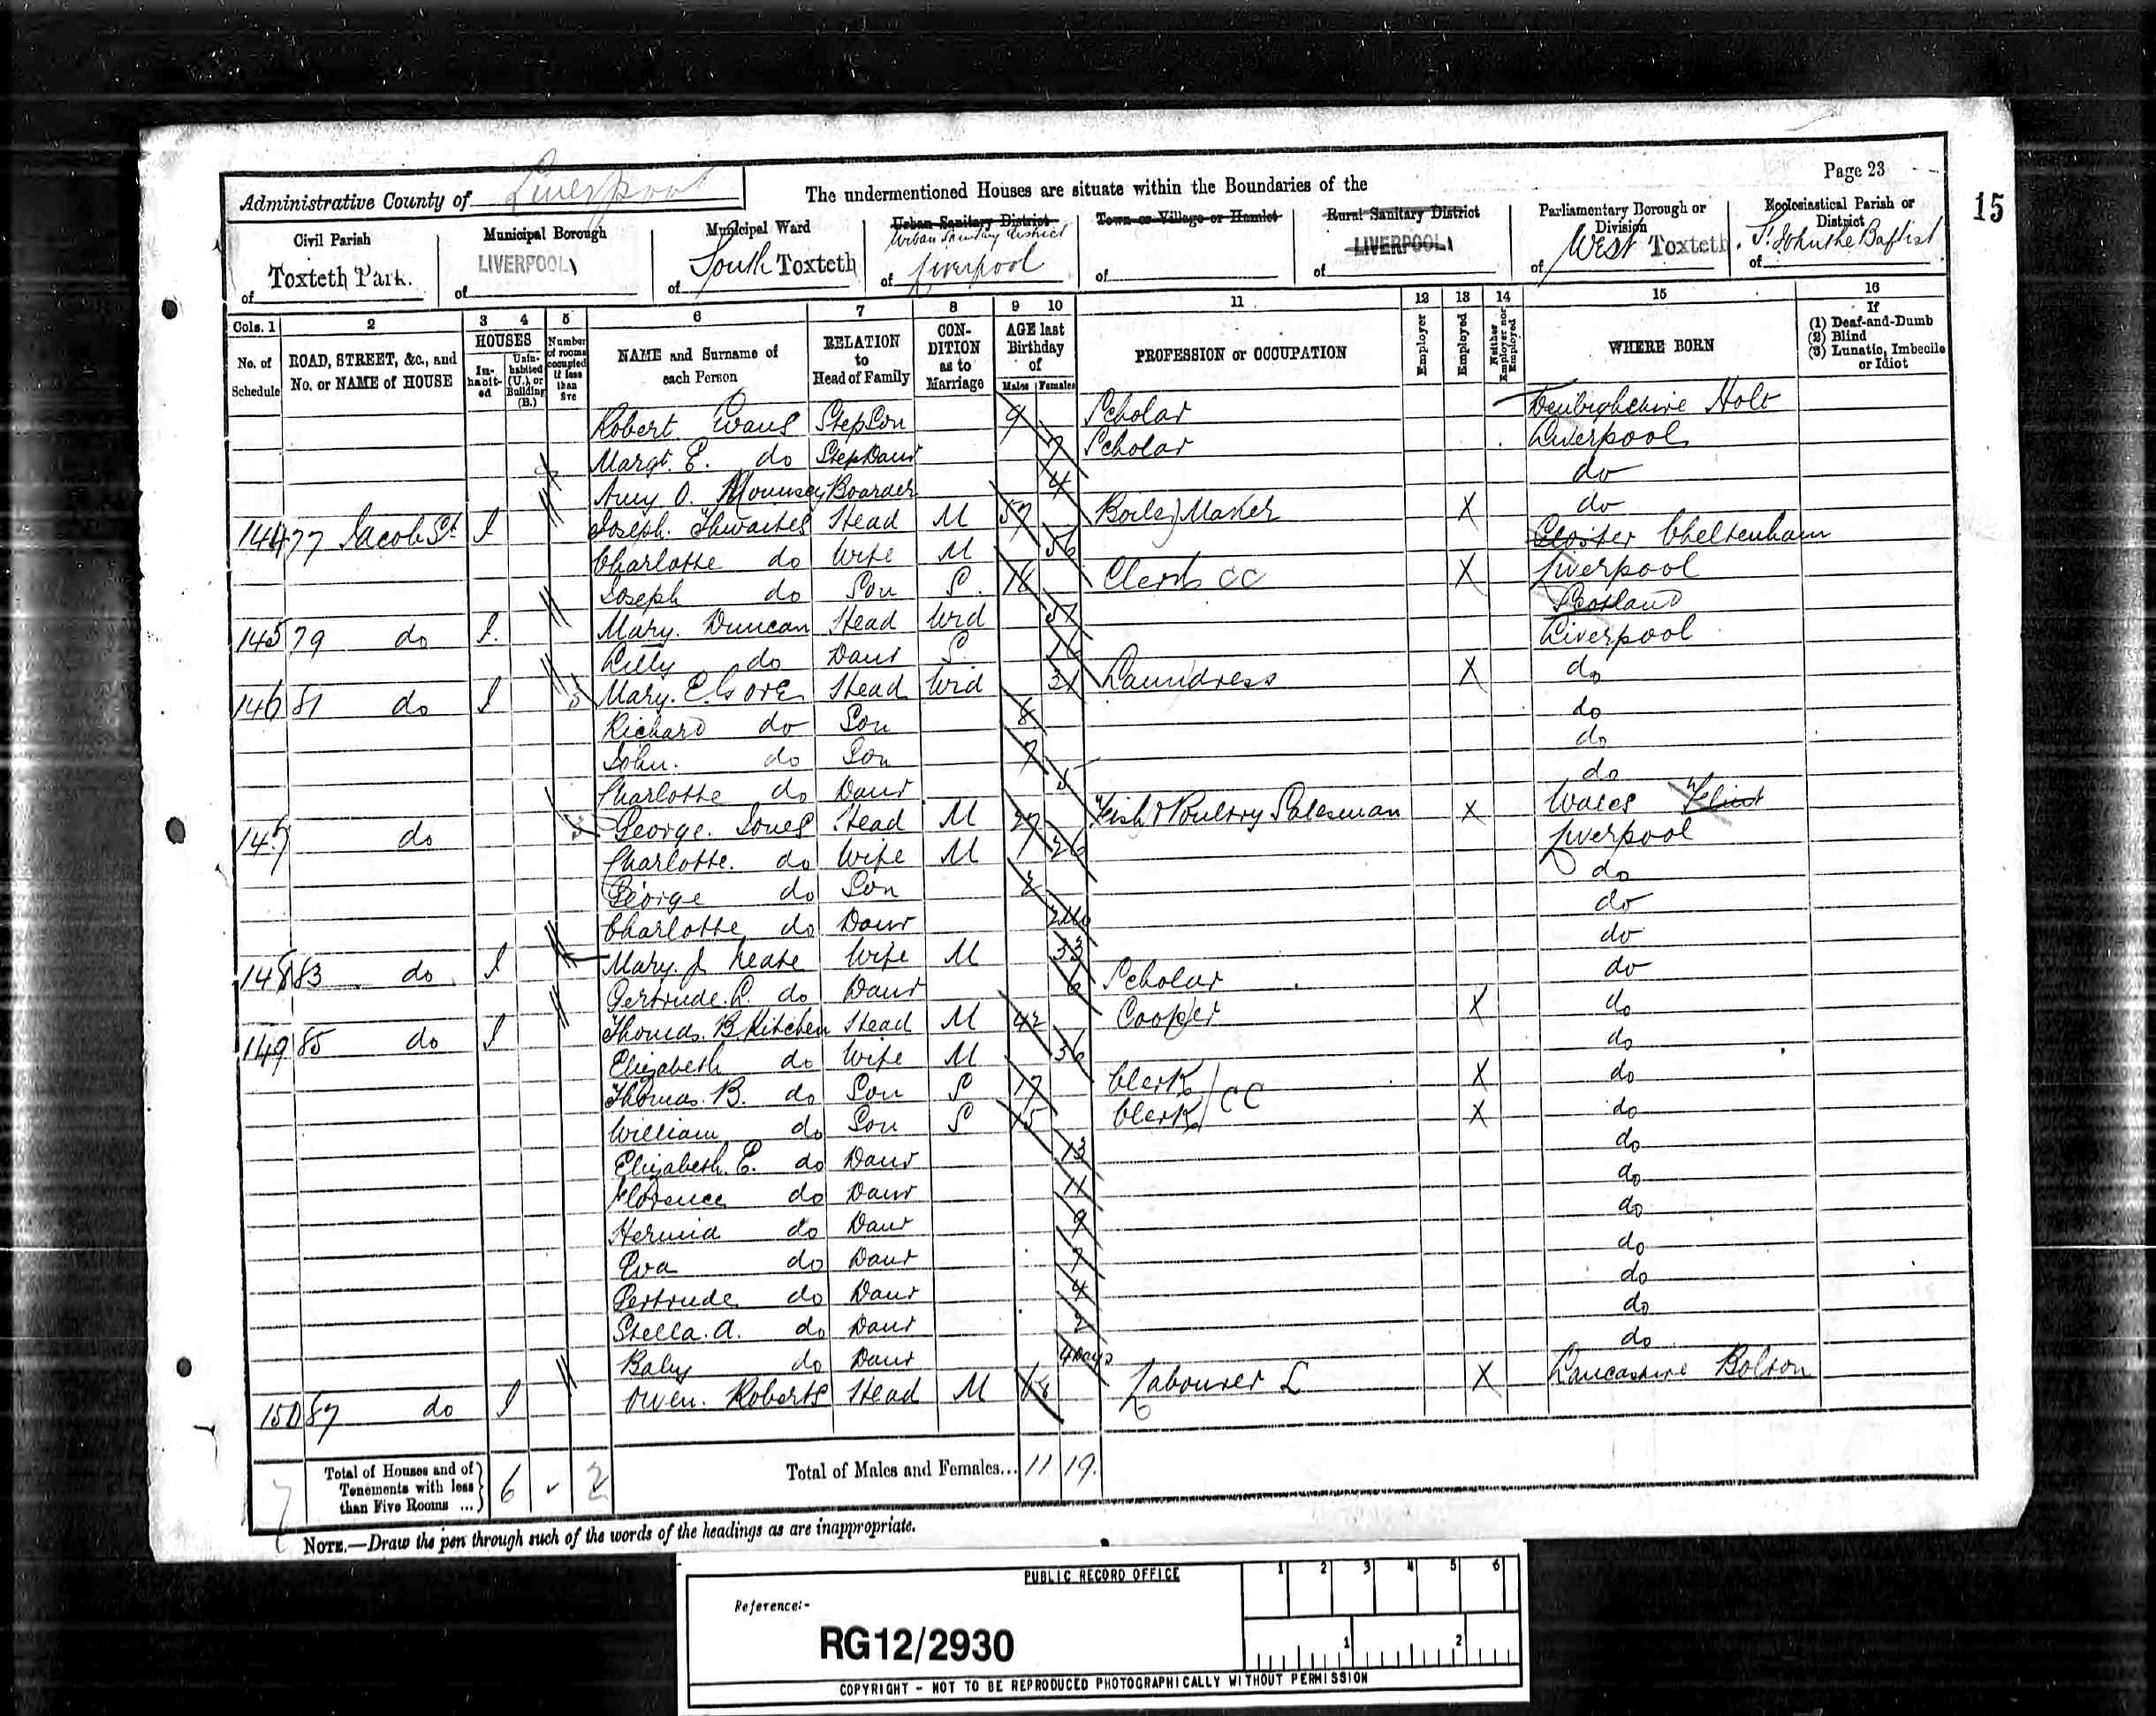 Page 23
15
Administrative County of Liverpool
The undermentioned Houses are situate within the Boundaries of the
Civil Parish of Toxteth Park.
Municipal Borough of LIVERPOOL
Municipal Ward of South Toxteth
Urban Sanitary District Urban Sanitary District of Liverpool
Town or Village or Hamlet of
Rural Sanitary District of LIVERPOOL
Parliamentary Borough or Division of West Toxteth
Ecclesiastical Parish or District of St John the Baptist
Cols. 1 2 3 4 5 6 7 8 9 10 11 12 13 14 15 16
No. of Schedule
ROAD, STREET, &c., and No. or NAME of HOUSE
HOUSES
In-habit-ed
Unin-habited (U.) or Building (B.)
Number of rooms occupied if less than five
NAME and Surname of each Person
RELATION to Head of Family
CON-DITION as to Marriage
AGE last Birthday of
Males Females
PROFESSION or OCCUPATION
Employer
Employed
Neither Employer nor Employed
WHERE BORN
If
(1) Deaf-and-Dumb
(2) Blind
(3) Lunatic, Imbecile or Idiot
Robert Evans StepSon 9 Scholar Denbighshire Holt
Margt. E. do StepDaur 7 Scholar Liverpool
Amy O. Mounsey Boarder 4 do
144 77 Jacob St 1 Joseph Thwaites Head M 57 Boiler Maker X do
Charlotte do Wife M 56 Gloster Cheltenham
Joseph do Son S. 18 Clerk CC X Liverpool
145 79 do 1 Mary. Duncan Head Wid 57 Scotland
Lilly do Daur S. 16 Liverpool
146 81 do 1 3 Mary. Head Wid 31 Laundress X do
Richard do Son 8 do
John. do Son 7 do
Charlotte do Daur 5 do
147 do 3 George. Jones Head M 27 Fish & Poultry Salesman X Wales Flint
Charlotte. do Wife M 26 Liverpool
George do Son 2 do
Charlotte do Daur 2Mo do
148 83 do 1 Mary. J Wife M 33 do
Gertrude. L. do Daur 6 Scholar do
149 85 do 1 Thomas. B. Kitchen Head M 42 Cooper X do
Elizabeth do Wife M 36 do
Thomas. B. do Son S 17 Clerk CC X do
William do Son S 15 Clerk X do
Elizabeth. E. do Daur 13 do
Florence do Daur 11 do
Hermia do Daur 9 do
Eva do Daur 7 do
Gertrude do Daur 4 do
Stella. A. do Daur 2 do
Baby do Daur 4 Days do
150 87 do 1 Owen. Roberts Head M 68 Labourer L X Lancashire Bolton
7 Total of Houses and of Tenements with less than Five Rooms ... 6 2
Total of Males and Females... 11 19.
NOTE.—Draw the pen through such of the words of the headings as are inappropriate.
PUBLIC RECORD OFFICE
1 2 3 4 5 6
Reference:-
RG12/2930
1 2
COPYRIGHT - NOT TO BE REPRODUCED PHOTOGRAPHICALLY WITHOUT PERMISSION